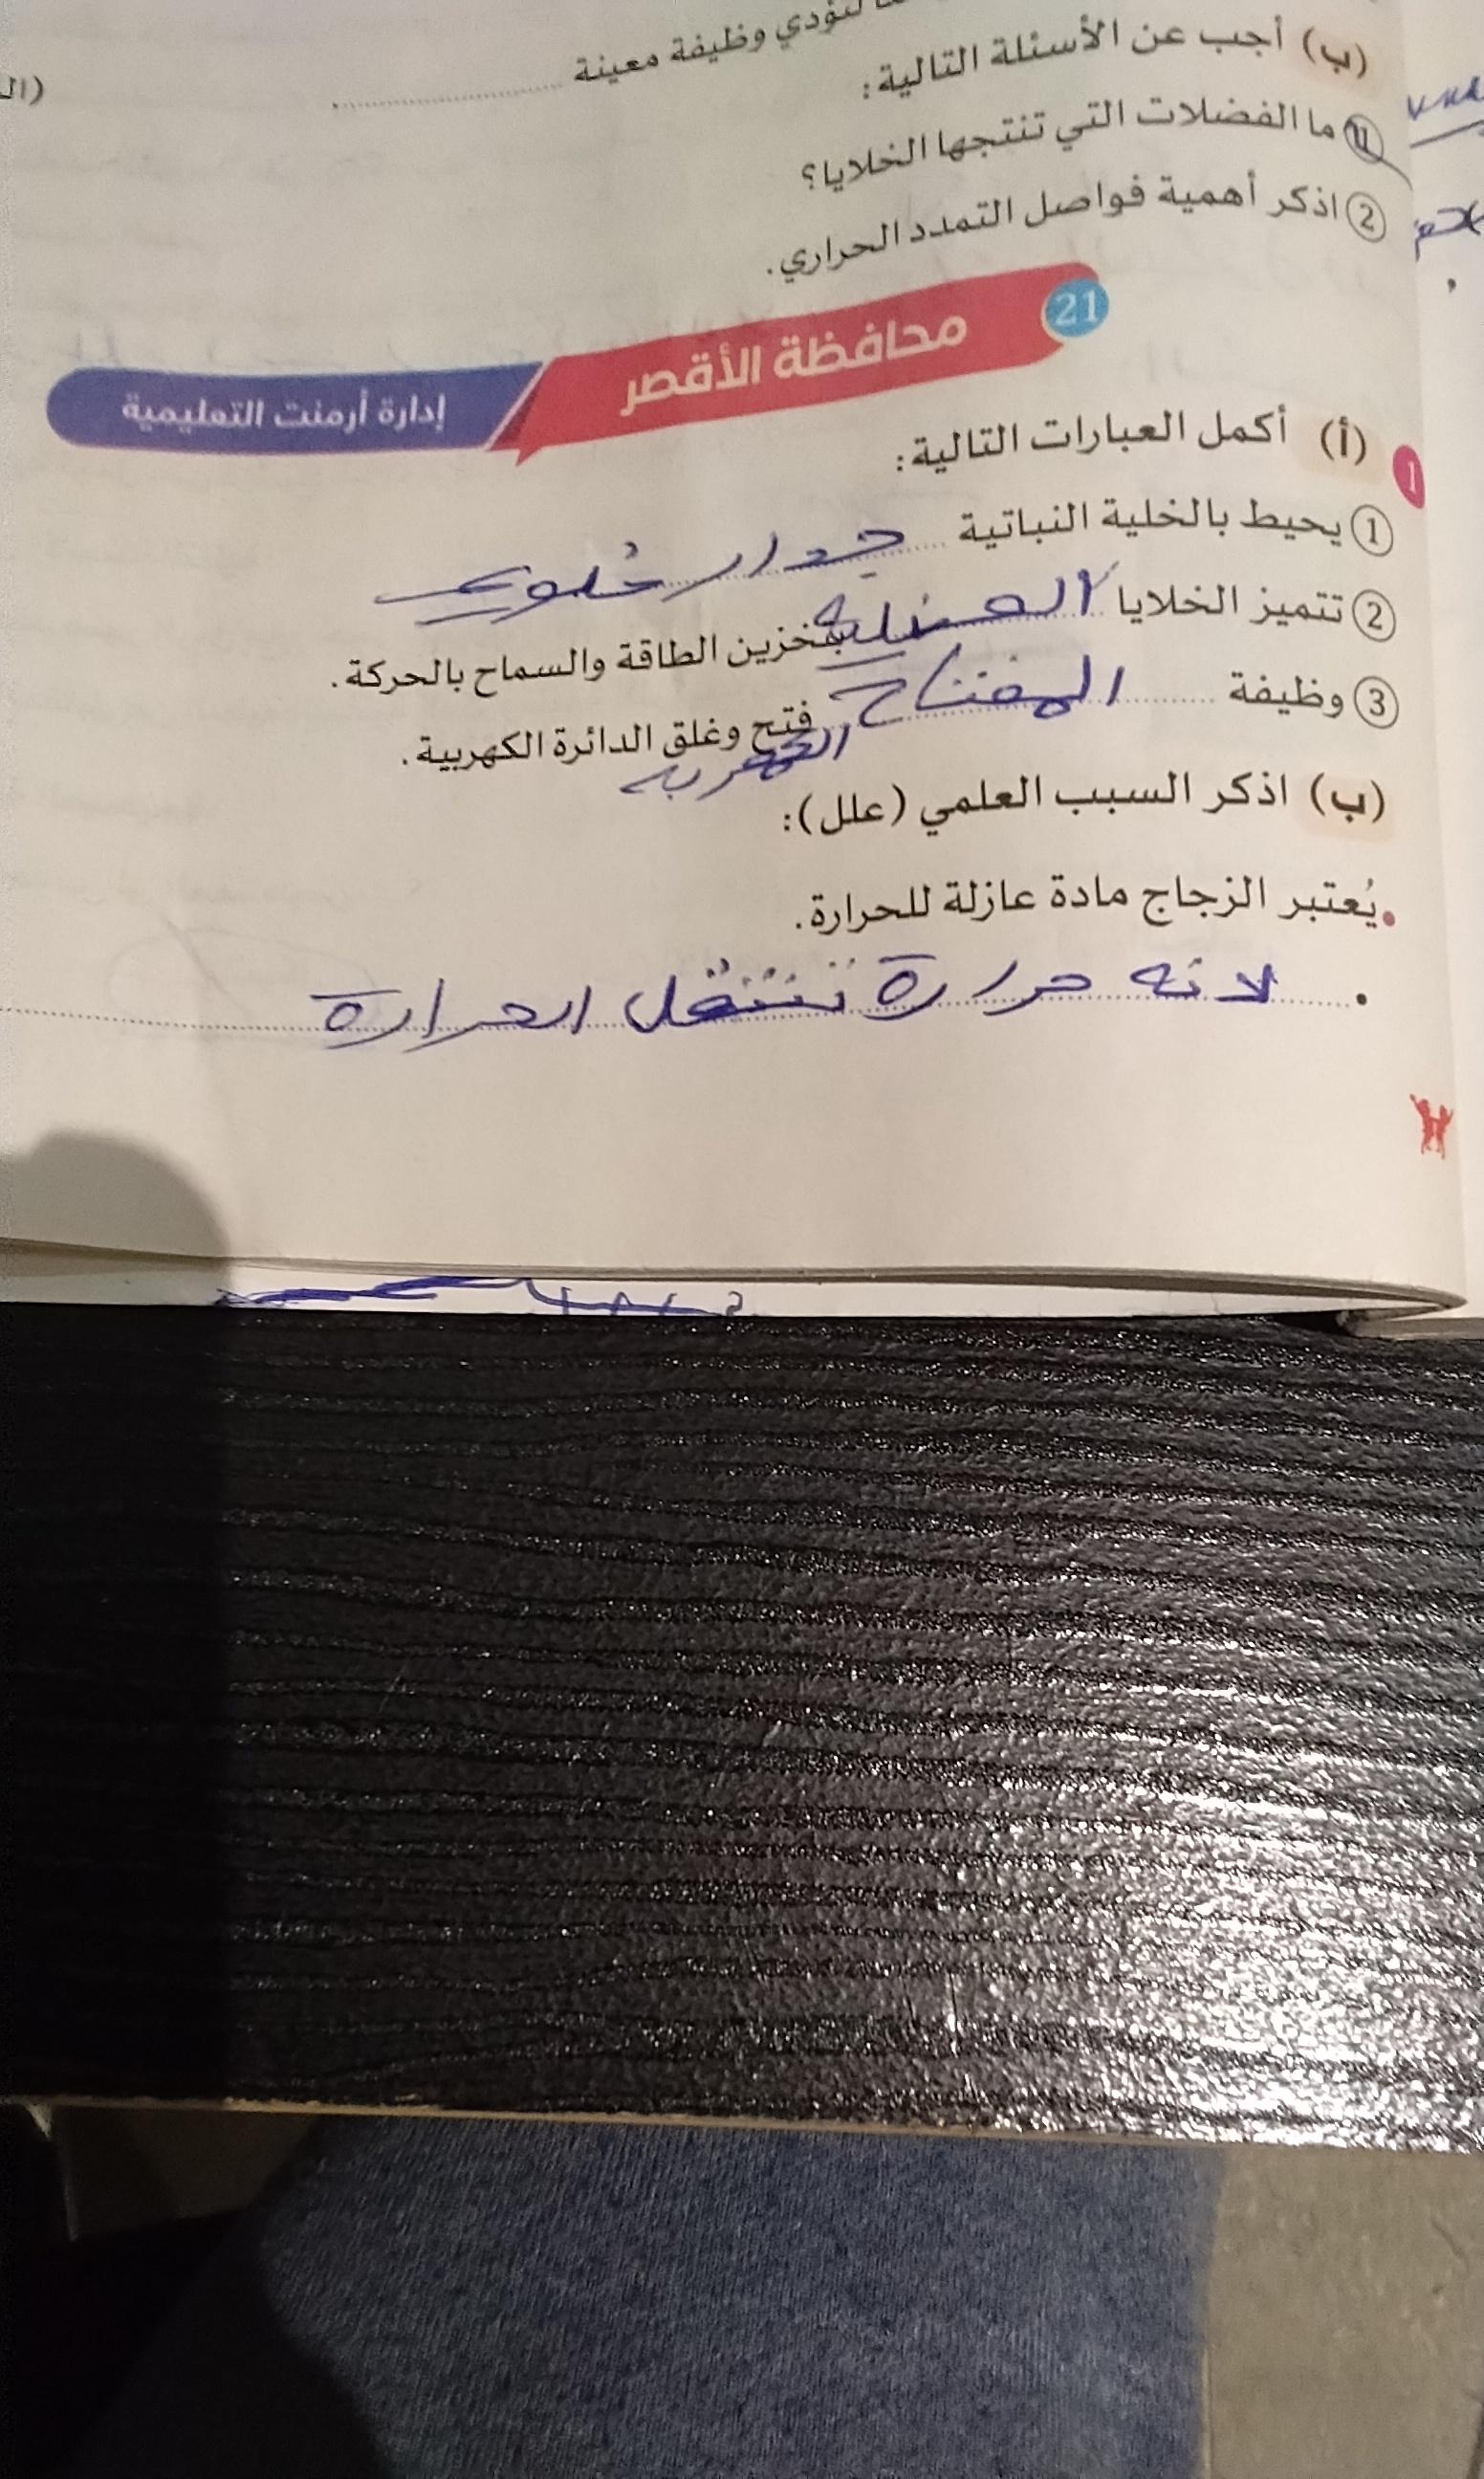 لتؤدي وظيفة معينة ..............
(ب) أجب عن الأسئلة التالية:
① ما الفضلات التي تنتجها الخلايا؟
② اذكر أهمية فواصل التمدد الحراري.
21 محافظة الأقصر إدارة أرمنت التعليمية
1 (أ) أكمل العبارات التالية:
① يحيط بالخلية النباتية جدار خلوي
② تتميز الخلايا العضلية بتخزين الطاقة والسماح بالحركة.
③ وظيفة المفتاح الكهربيه فتح وغلق الدائرة الكهربية.
(ب) اذكر السبب العلمي (علل):
• يُعتبر الزجاج مادة عازلة للحرارة.
• لانه حرارة تنتقل الحرارة